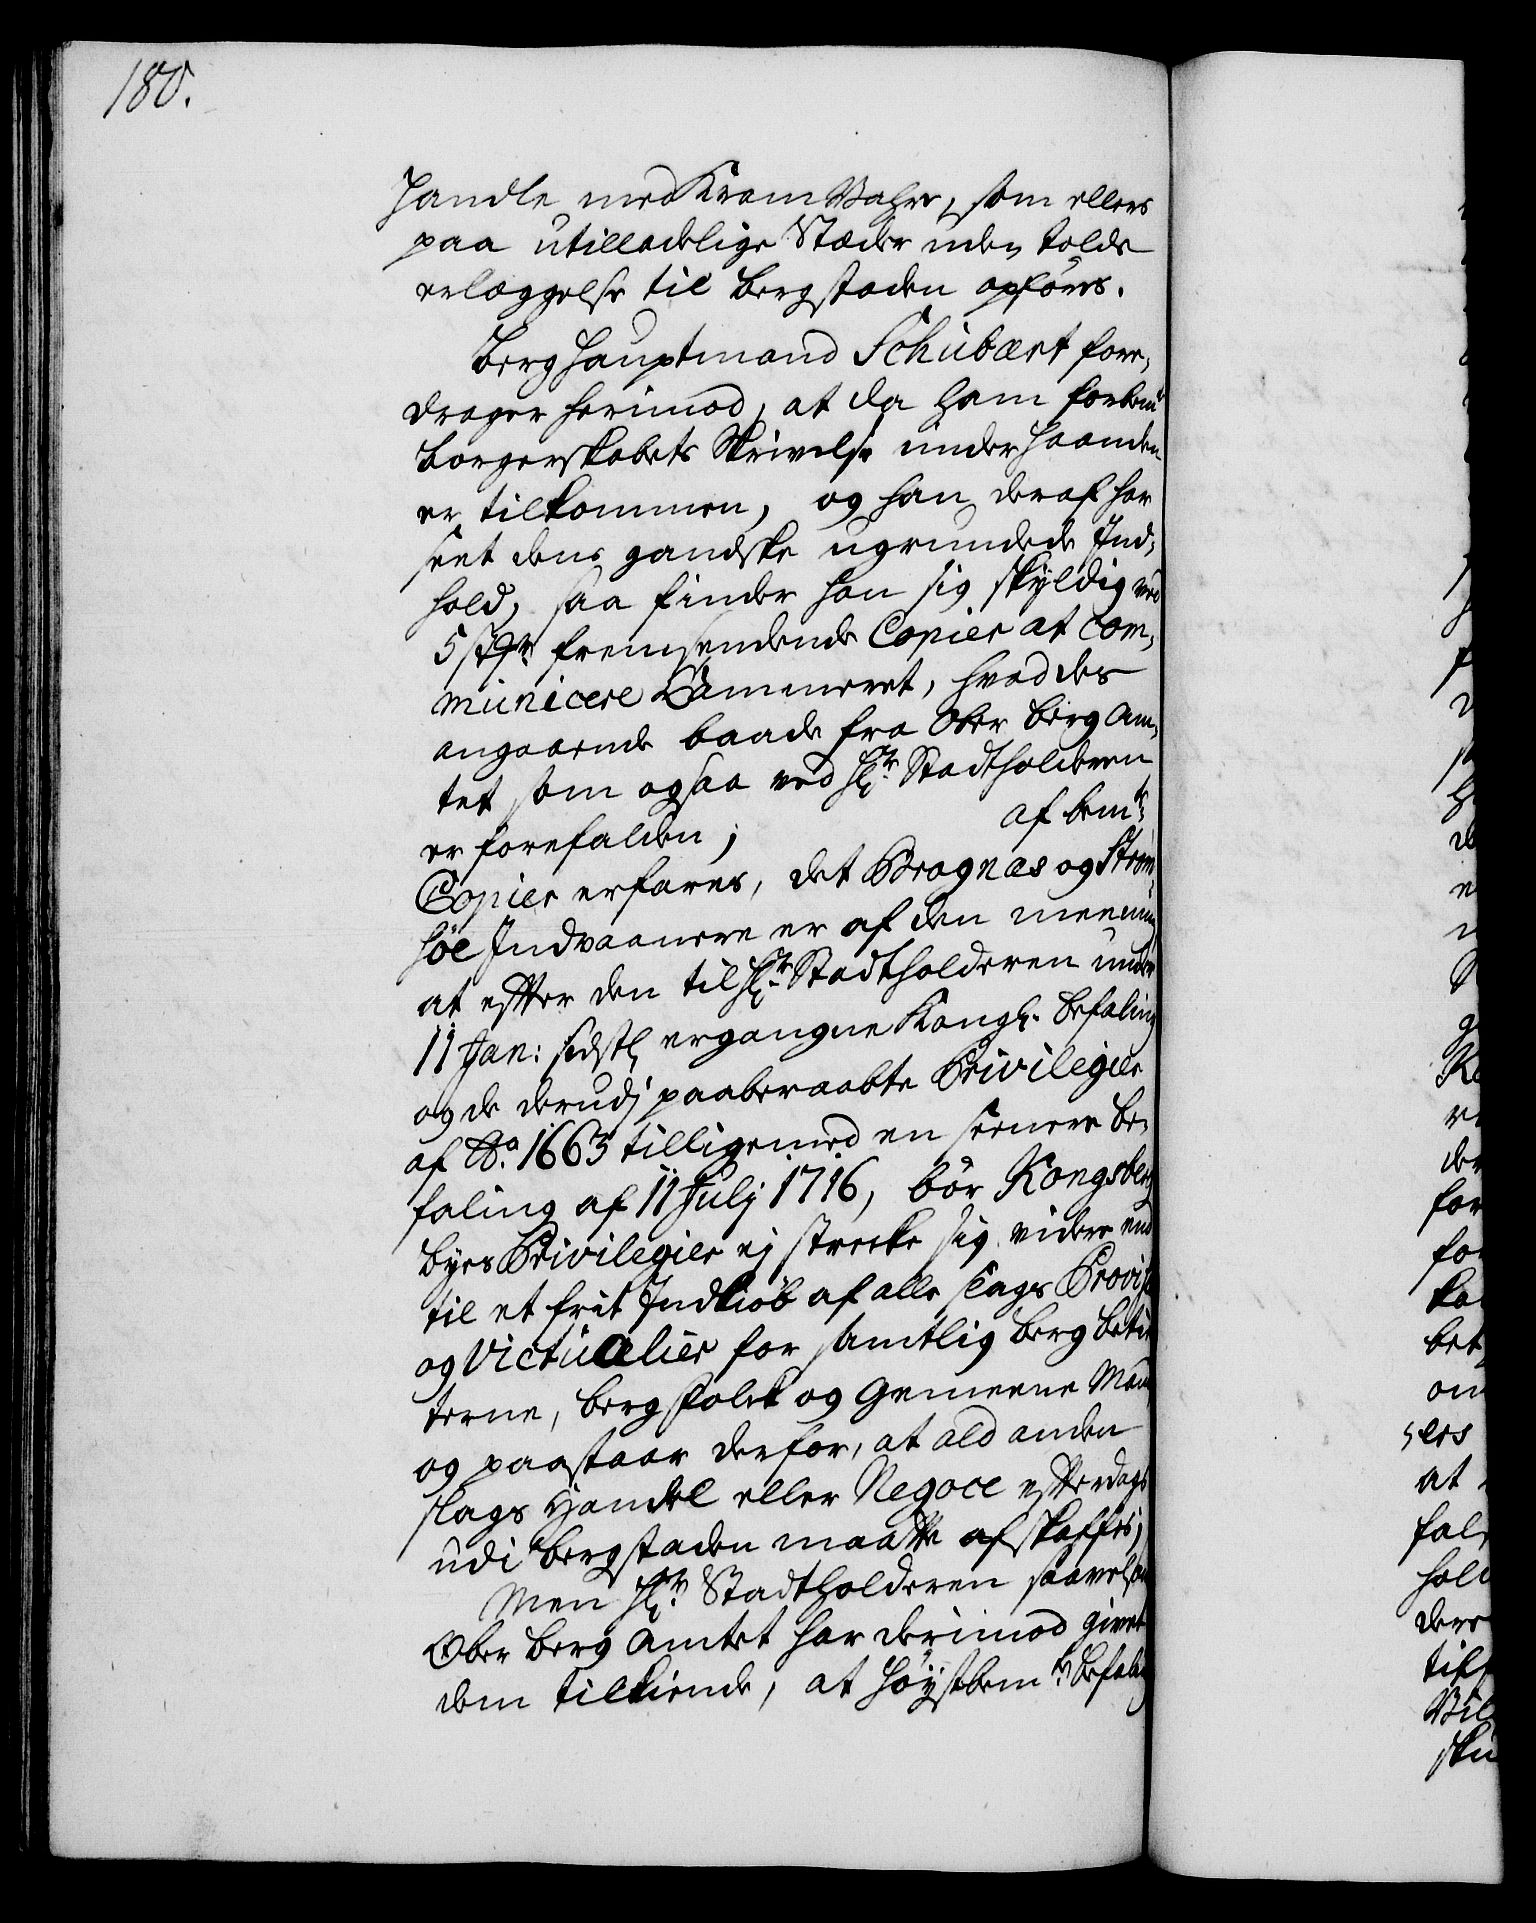 180.
Handle med Kram Vahre, som ellers
paa utilladelige Stæder uden tolds
erlæggelse til bergstaden opføres.
Berghauptmand Schubært fore,
drager herimod, at da ham forbemte
borgerskabets Skrivelse under haanden
er tilkommen, og han deraf har
seet dens gandske ugrundede Ind,
hold, saa finder han sig skyldig ved
5 st. fremsendende Copier at com,
municere Cammeret, hvad des
angaaende baade fra Ober berg Am,
tet som ogsaa ved Hr. Stadtholderen
er forefalden; af bemte
Copier erfares, det Bragnæs og Strøm,
søe Indvaanere er af den meening
at efter den til Hr. Stadtholderen under
11 Jan: sidstl ergangne Kongl. befaling
og de derudj paaberaabte Privilegier
af Ao. 1663 tilligemed en seenere be,
faling af 11 Julj 1716, bør Kongsberg
byes Privilegier ej strecke sig videre end
til et frit Indkiøb af alle slags Provis
og Victualier for samtlig berg betien
terne, bergfolck og Gemeene Mand
og paastaar derfor, at ald anden
slags Handel eller Negoce efterdags
udi bergstaden maatte afskaffes;
Men Hr. Stadtholderen saavelsom
Ober berg Amtet har derimod givet
dem tilkiende, at høystbemte befaling